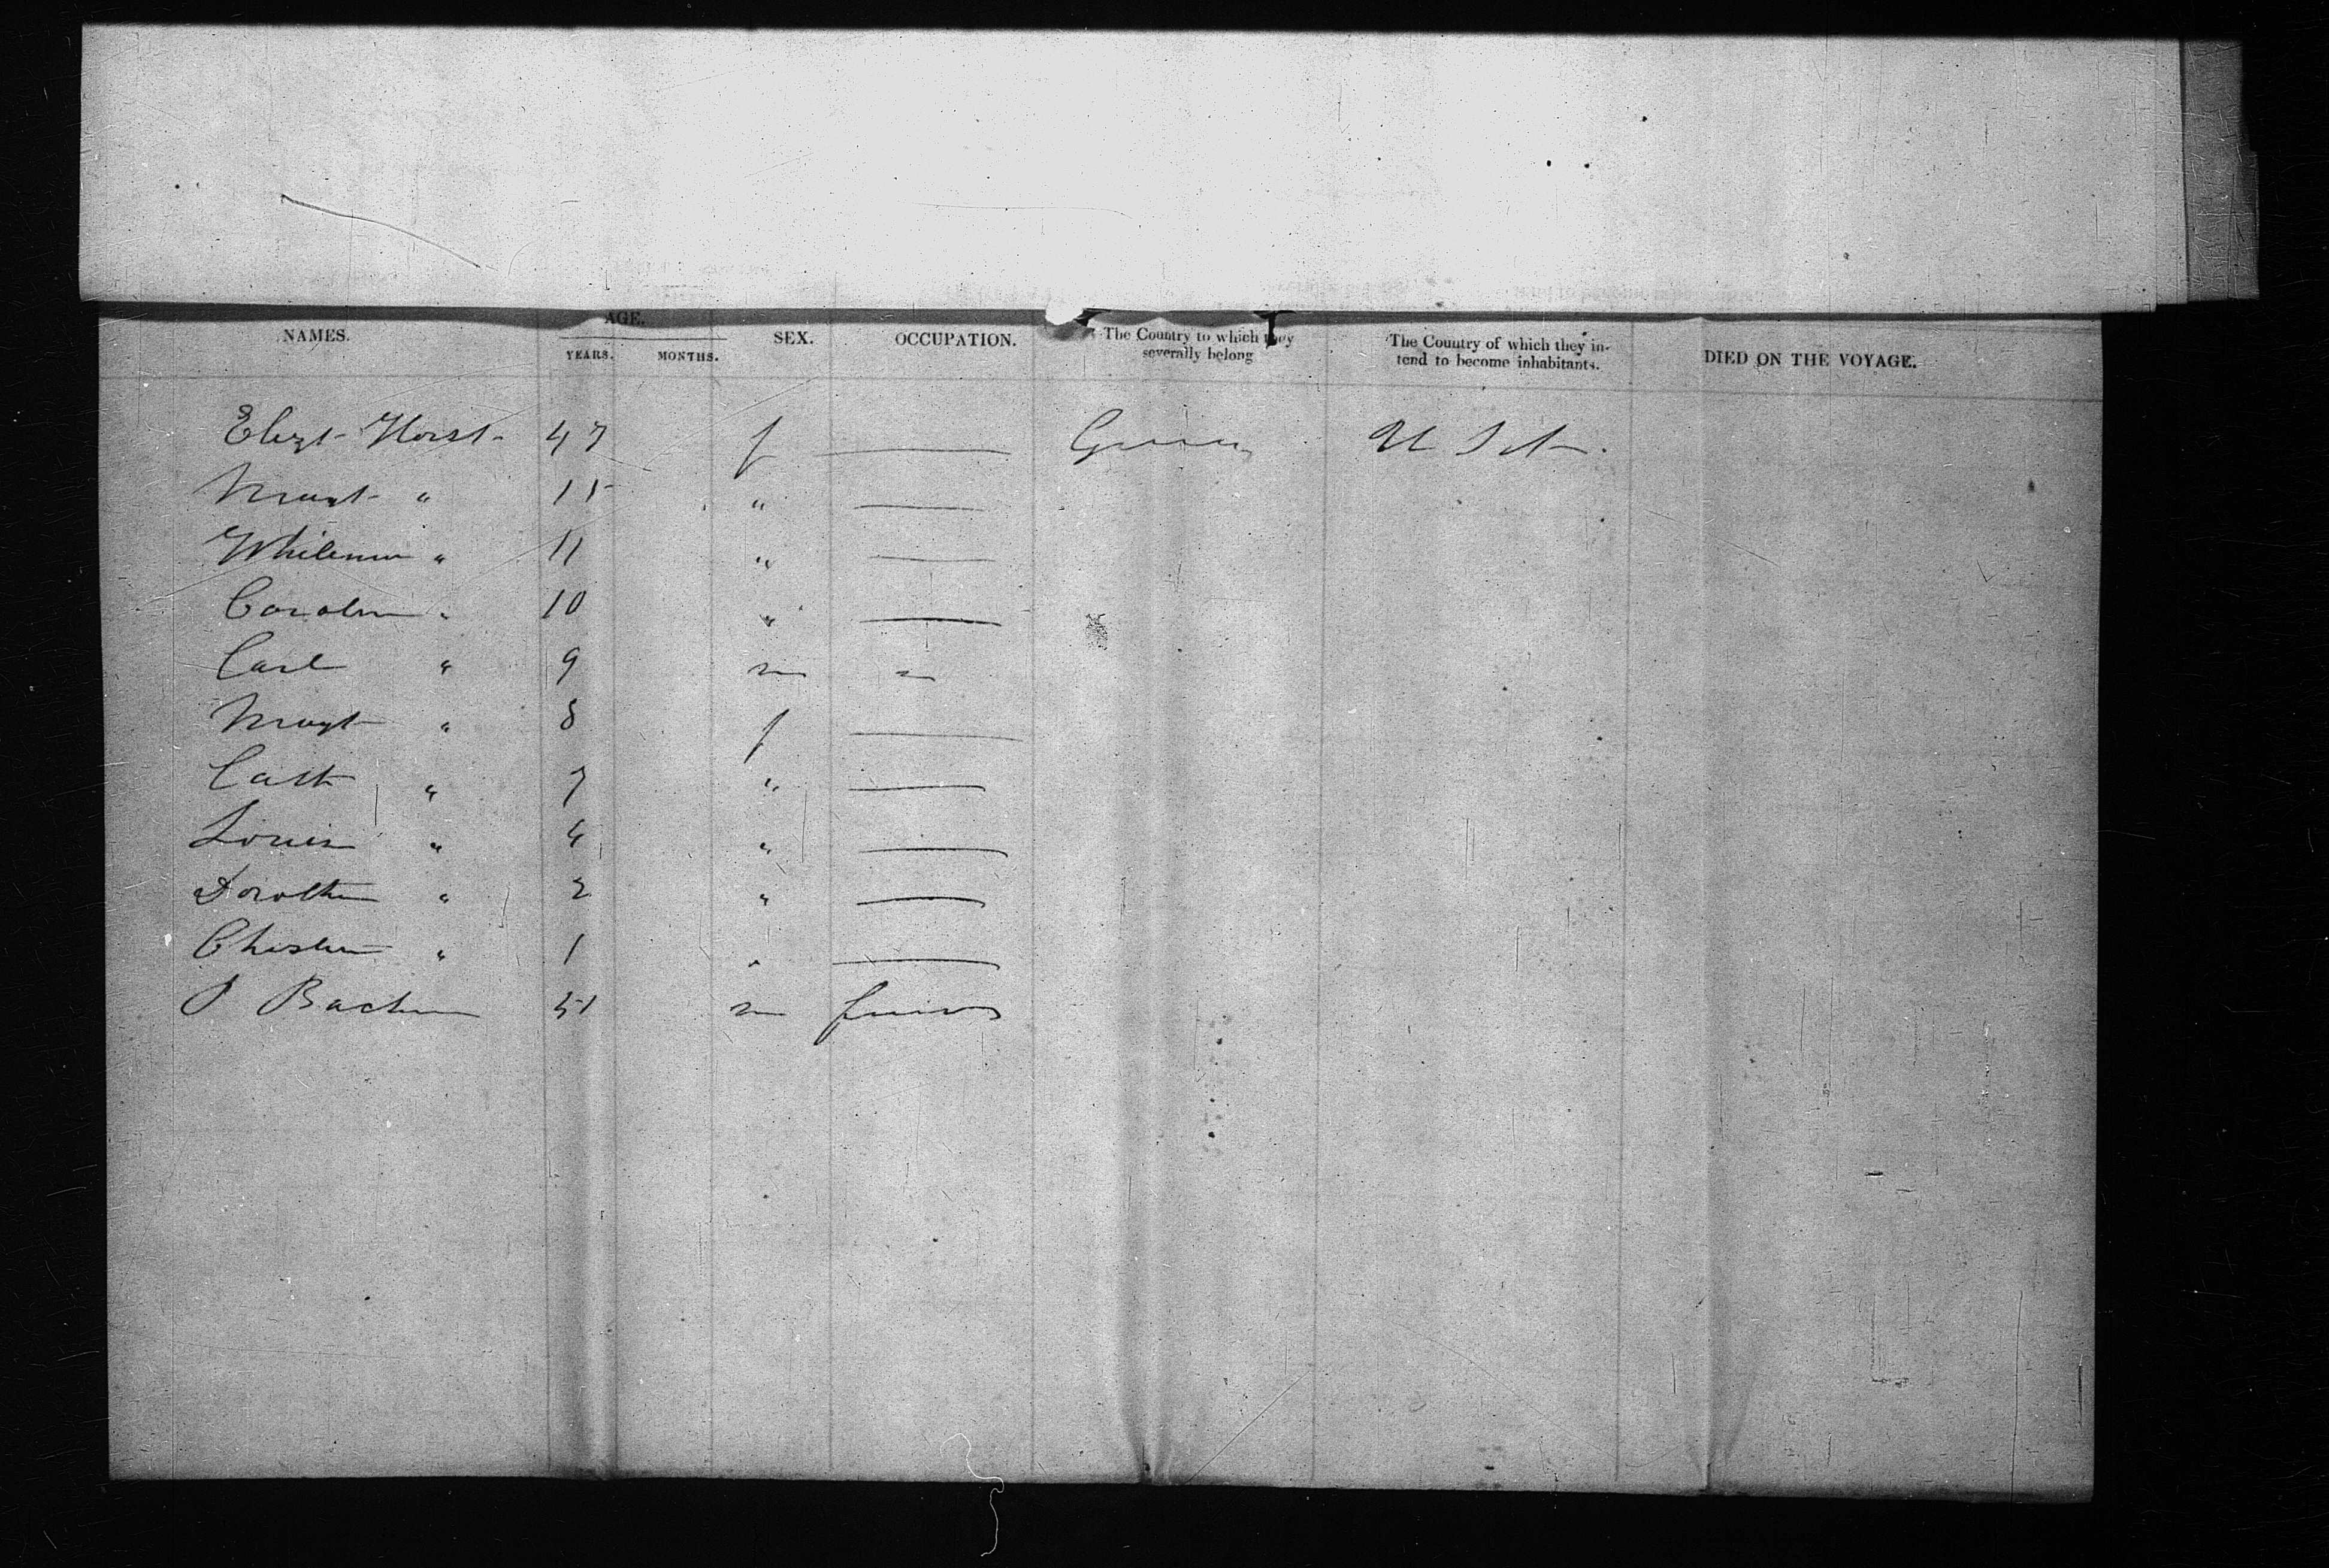 NAMES. AGE. YEARS. MONTHS. SEX. OCCUPATION. The Country to which they severally belong The Country of which they intend to become inhabitants. DIED ON THE VOYAGE.
Elizt Horst 47 f —— U S A.
Margt " 15 " ——
" 11 " ——
Carolin " 10 " ——
Carl " 9 m "
Margt " 8 f ——
Cath " 7 " ——
Louis " 4 " ——
Dorothe " 2 " ——
" 1 " ——
51 m